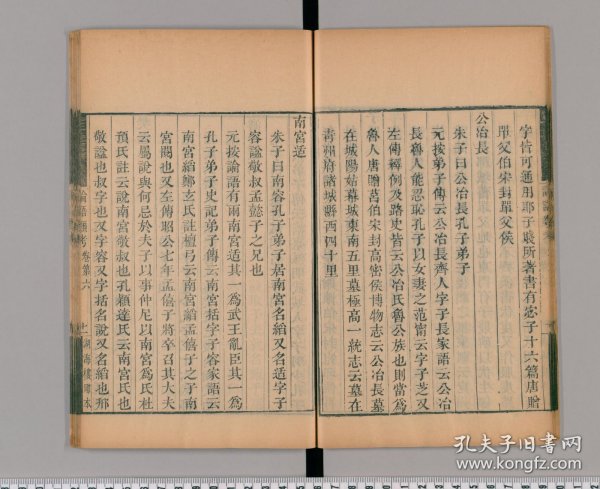 字皆可通用耶子賤所著書有宓子十六篇唐贈
單父伯宋封單父侯
公冶長
朱子曰公冶長孔子弟子
元按弟子傳云公冶長齊人字子長家語云公冶
長魯人能忍恥孔子以女妻之范甯云字子芝又
左傳釋例及路史皆云公冶氏魯公族也則當為
魯人唐贈莒伯宋封高密侯博物志云公冶長墓
在城陽姑幕城東南五里墓極高一統志云墓在
青州府諸城縣西四十里
南宮适
朱子曰南容孔子弟子居南宮名縚又名适字子
容謚敬叔孟懿子之兄也
元按論語有兩南宮适其一為武王亂臣其一為
孔子弟子史記弟子傳云南宮括字子容家語云
南宮縚鄭玄氏註檀弓云南宮縚孟僖子之子南
宮閱也又左傳昭公七年孟僖子將卒召其大夫
云屬說與何忌於夫子以事仲尼以南宮為氏杜
預氏註云說南宮敬叔也孔穎達氏云南宮氏也
敬謚也叔字也又字容又字括名說又名縚也邢
卷第六
湖海樓雕本
孔夫子旧书网
www.kongfz.com